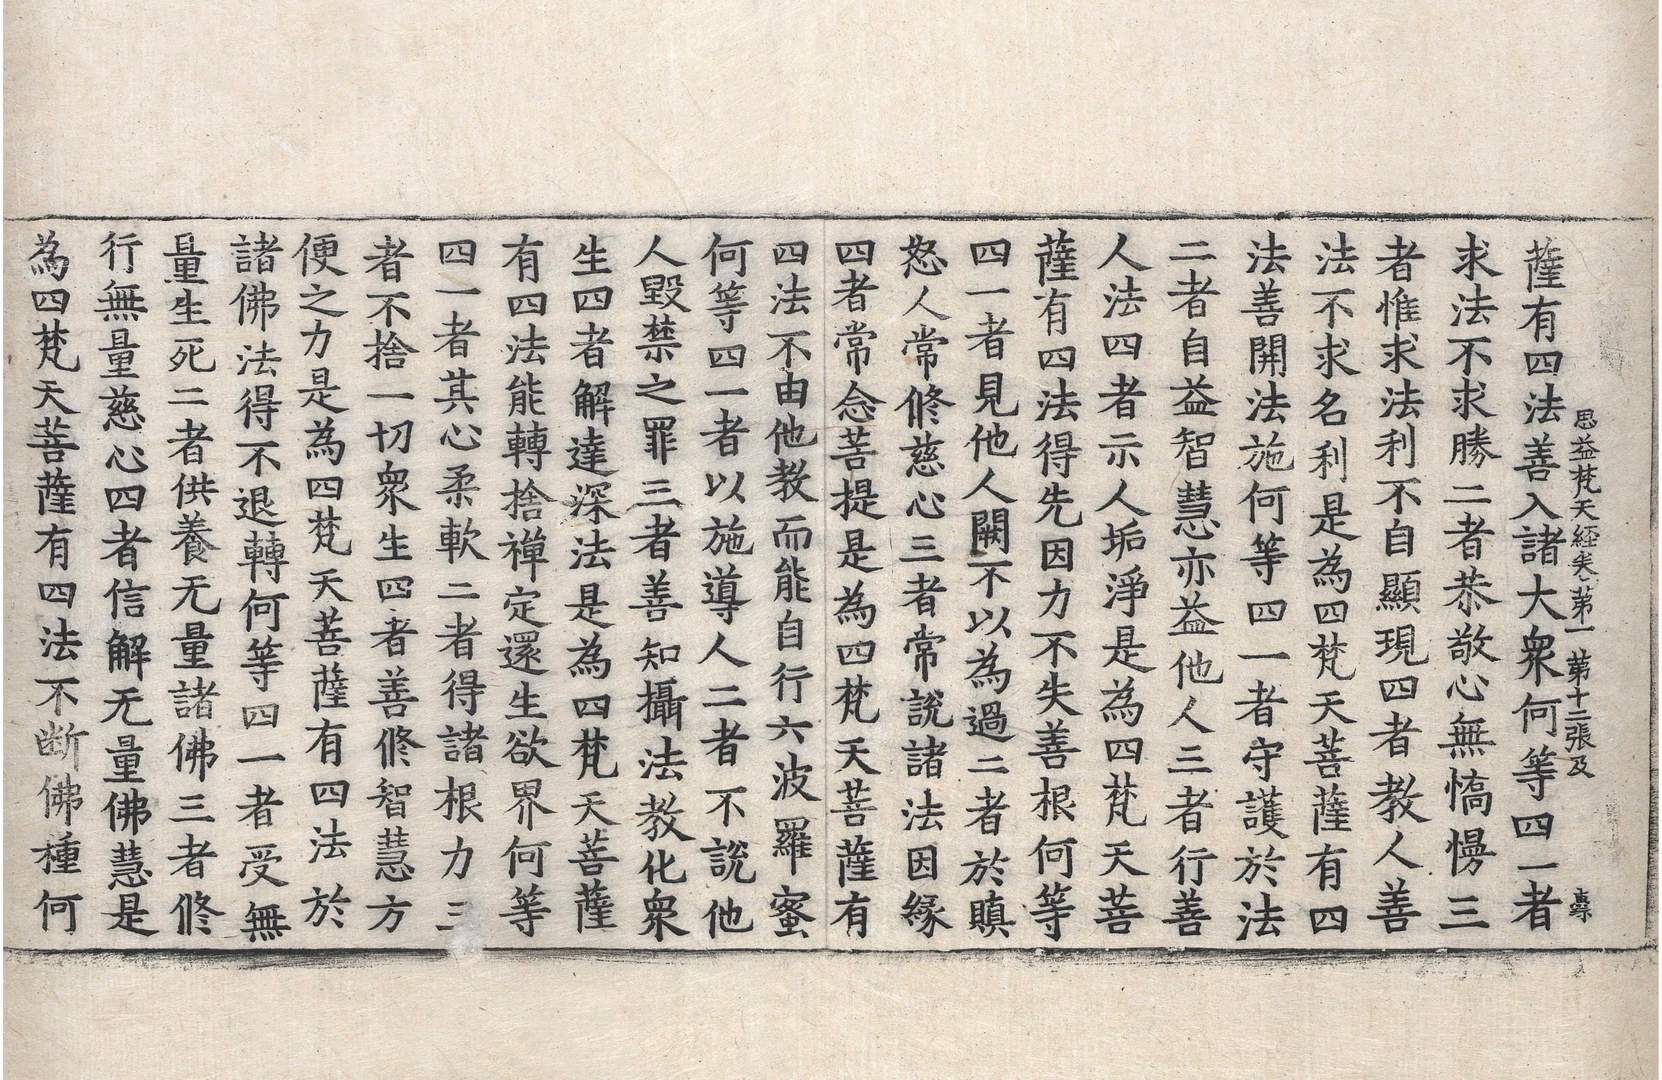 思益梵天經卷第一 第十二張 及
薩有四法善入諸大衆何等四一者
求法不求勝二者恭敬心無憍慢三
者惟求法利不自顯現四者教人善
法不求名利是為四梵天菩薩有四
法善開法施何等四一者守護於法
二者自益智慧亦益他人三者行善
人法四者示人垢淨是為四梵天菩
薩有四法得先因力不失善根何等
四一者見他人闕不以為過二者於瞋
怒人常修慈心三者常說諸法因緣
四者常念菩提是為四梵天菩薩有
四法不由他教而能自行六波羅蜜
何等四一者以施導人二者不說他
人毀禁之罪三者善知攝法教化衆
生四者解達深法是為四梵天菩薩
有四法能轉捨禪定還生欲界何等
四一者其心柔軟二者得諸根力三
者不捨一切衆生四者善修智慧方
便之力是為四梵天菩薩有四法於
諸佛法得不退轉何等四一者受無
量生死二者供養无量諸佛三者修
行無量慈心四者信解无量佛慧是
為四梵天菩薩有四法不断佛種何